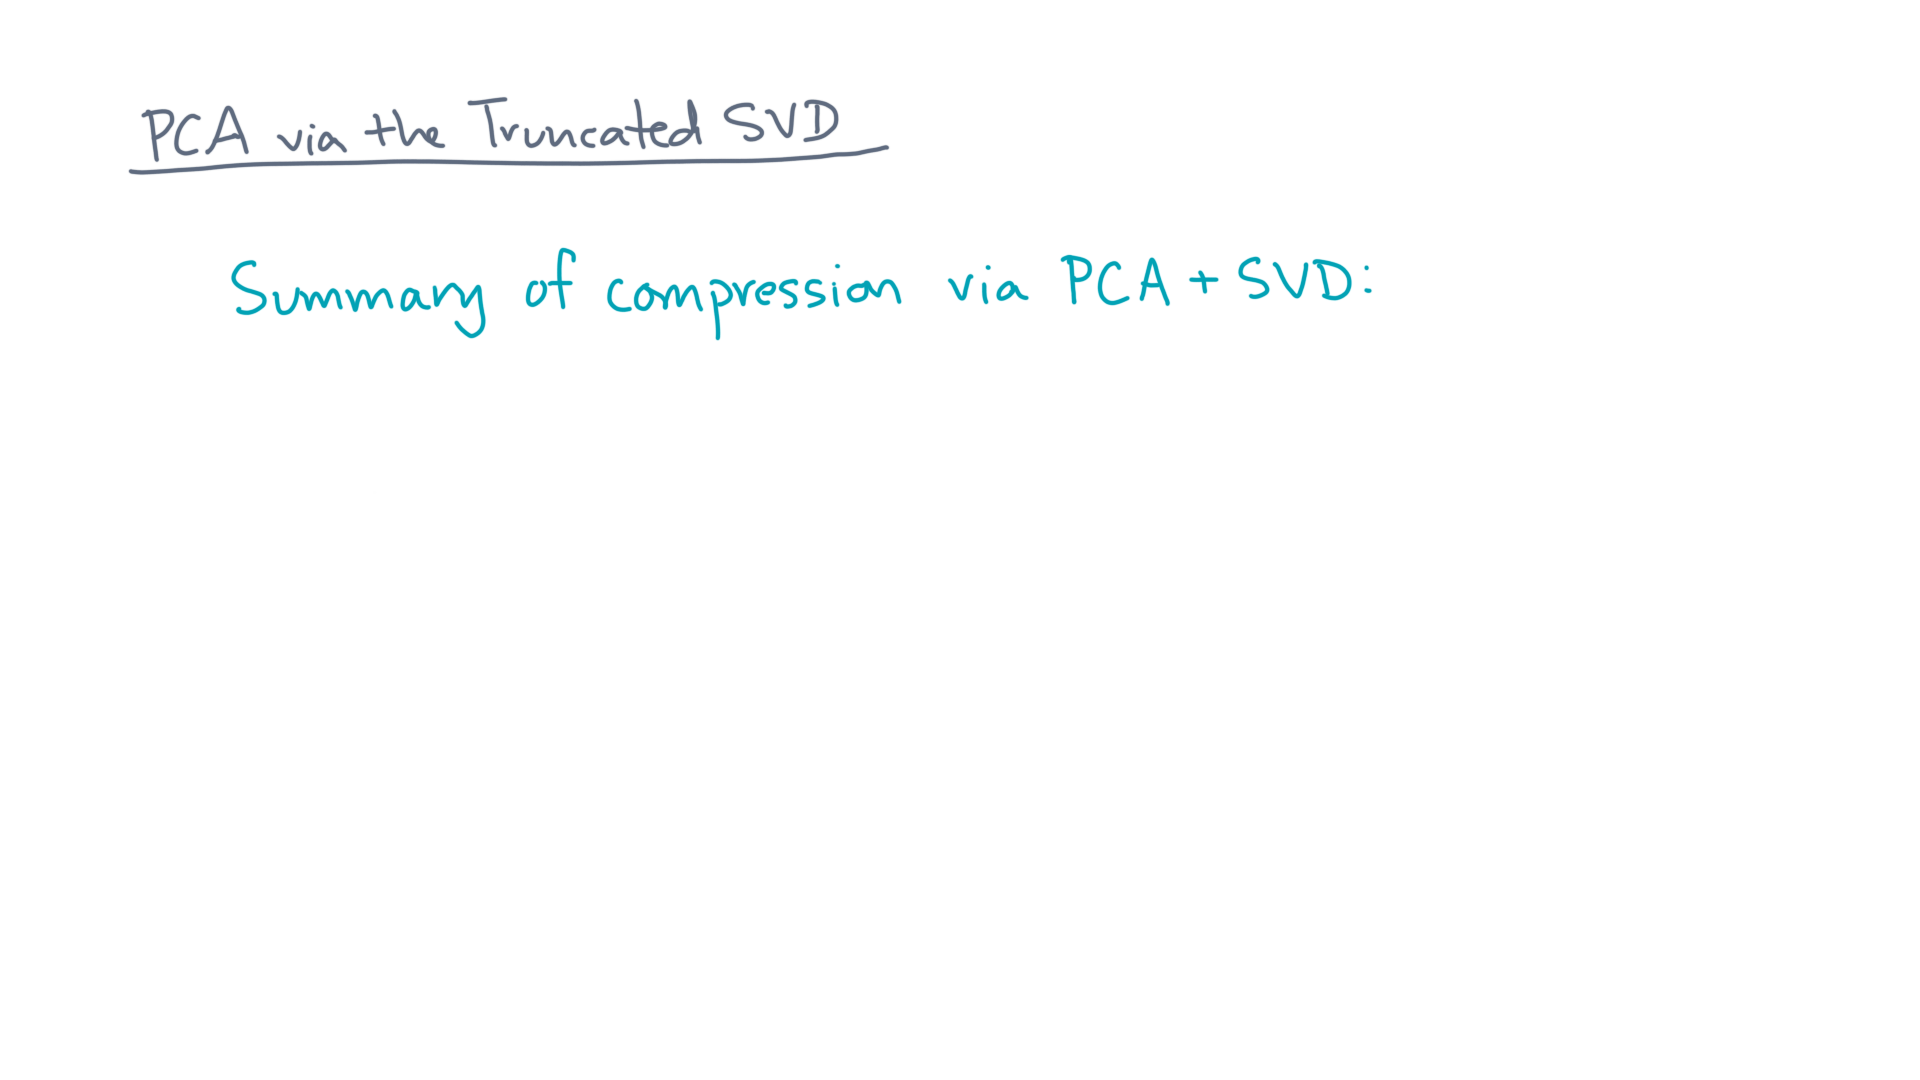 PCA via the Truncated SVD
Summary of compression via PCA + SVD: